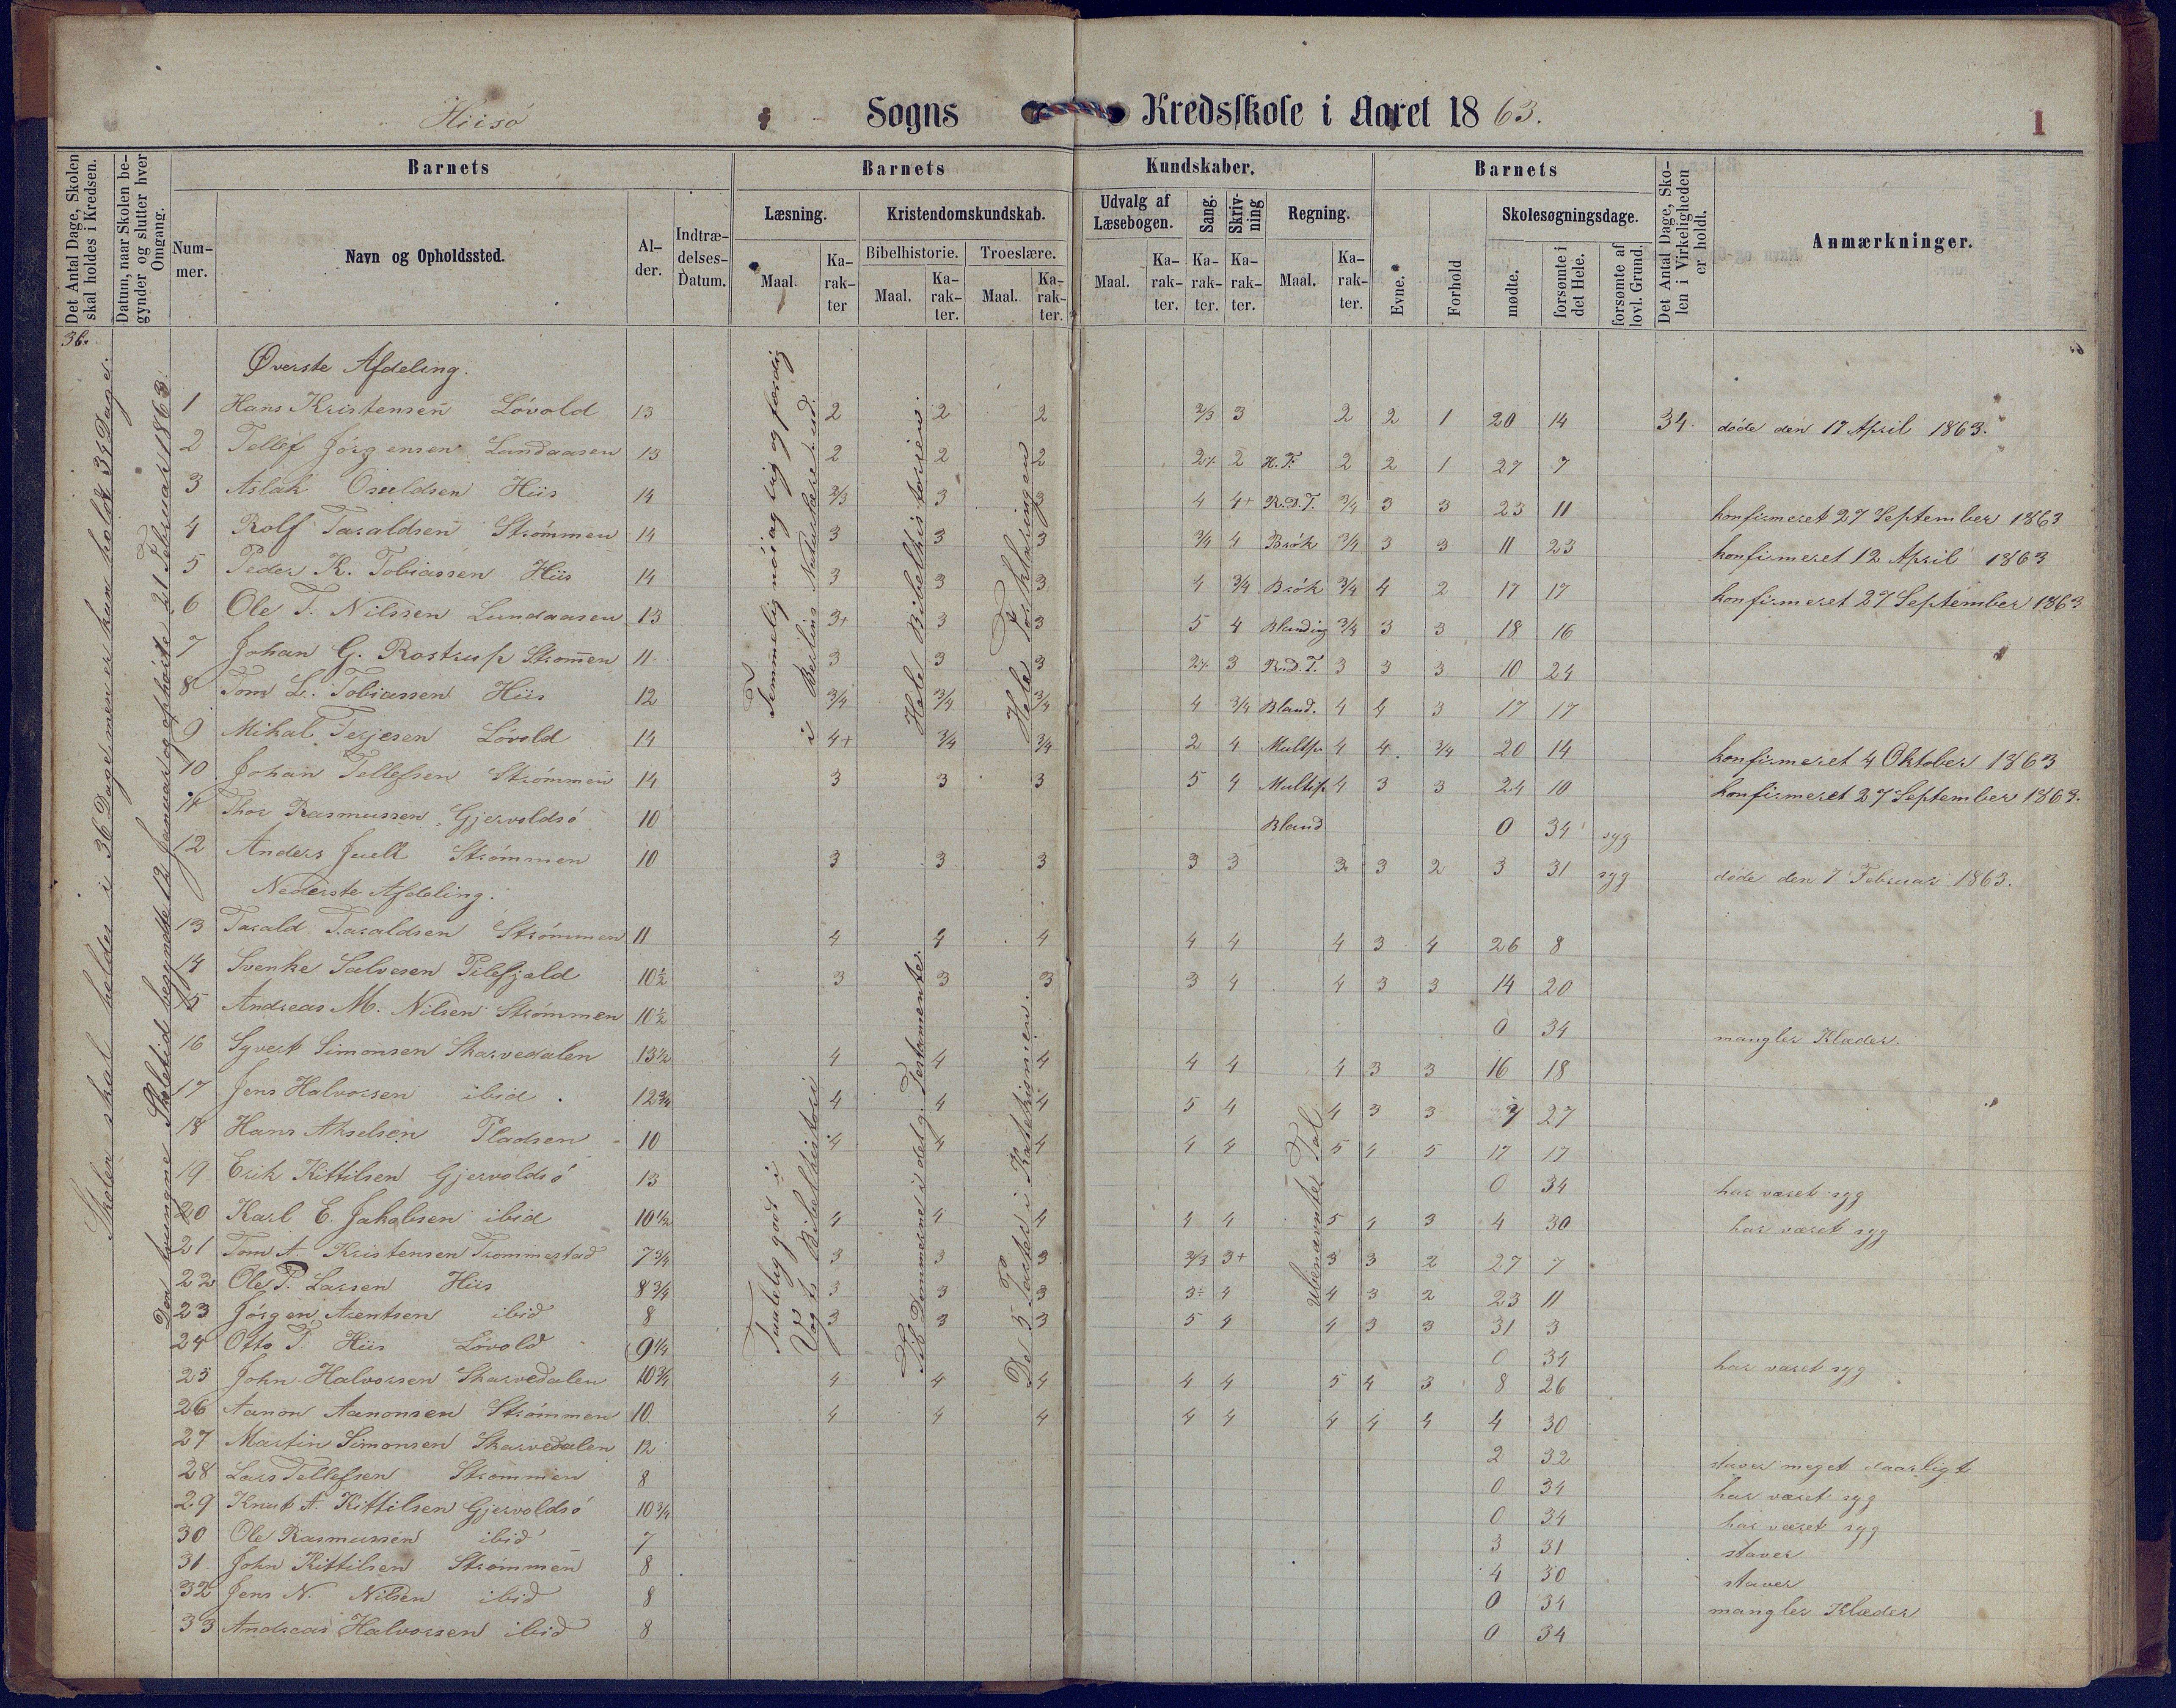 Hiisö Sogns Kredsskole i Aaret 1863.
1
Det Antal Dage, Skolen skal holdes i Kredsen.
Datum, naar Skolen begynder og slutter hver Omgang.
Barnets
Nummer.
Navn og Opholdssted.
Alder.
Indtrædelses-Datum.
Barnets Kundskaber.
Læsning.
Maal.
Karakter
Kristendomskundskab.
Bibelhistorie.
Maal.
Karakter.
Troeslære.
Maal.
Karakter.
Udvalg af Læsebogen.
Maal.
Karakter.
Sang.
Karakter.
Skrivning
Karakter.
Regning.
Maal.
Karakter.
Barnets
Evne.
Forhold
Skolesøgningsdage.
mødte.
forsømte i det Hele.
forsømte af lovl. Grund.
Det Antal Dage, Skolen i Virkeligheden er holdt.
Anmærkninger.
36.
Skolen skal holdes i 36 Dage men er kun holdt 34 Dage.
Den tvungne Skoletid begyndte 12 Januar og ophörte 21 Februar 1863.
Temmelig nöiagtig og færdig
i
Hele Bibelhistorien.
Hele Forklaringen
Øverste Afdeling.
1 Hans Kristensen Lövold 13 2 2 2 2/3 3 2 2 1 20 14 34. döde den 17 April 1863.
2 Tellef Jörgensen Lundaasen 13 2 2 2 2 2 H. T. 2 2 1 27 7
3 Aslak Osuldsen Hiis 14 2/3 3 3 4 4+ R.D.T. 3/4 3 3 23 11 konfirmeret 27 September 1863
4 Rolf Taraldsen Strömmen 14 3 3 3 3/4 4 Brök 3/4 3 3 11 23 konfirmeret 12 April 1863
5 Peder K. Tobiassen Hiis 14 3 3 3 4 3/4 Brök 3/4 4 2 17 17 konfirmeret 27 September 1863
6 Ole T. Nilssen Lundaasen 13 3+ 3 3 5 4 Blanding 3/4 3 3 18 16
7 Johan G. Rostrup Strömen 11 3 3 3 2 3 R.D.T. 3 3 3 10 24
8 Tom L. Tobiassen Hiis 12 3/4 3/4 3/4 4 3/4 Bland. 4 4 3 17 17
9 Mikal Terjesen Lövold 14 4+ 3/4 3/4 2 4 Multp 4 4 3/4 20 14 konfirmeret 4 Oktober 1863
10 Johan Tellefsen Strömmen 14 3 3 3 5 4 Multip 4 3 3 24 10 konfirmeret 27 September 1863.
11 Thor Rasmussen Gjervoldsö 10 Bland 0 34 syg
12 Anders Juell Strömmen 10 3 3 3 3 3 3 3 2 3 31 syg döde den 7 Februar 1863.
Nederste Afdeling.
Taalelig godt i
Vogts Bibelhistori
Til Dommerne i det g. Testamente.
De 5 Parter i Katekismen.
Ubenævnte Tal
13 Tarald Taraldsen Strömmen 11 4 4 4 4 4 4 3 4 26 8
14 Svenke Salvesen Pilefjeld 10½ 3 3 3 3 4 4 3 3 14 20
15 Andreas M. Nilsen Strömmen 10½ 0 34 mangler Klæder.
16 Syvert Simonsen Skarvedalen 13½ 4 4 4 4 4 4 3 3 16 18
17 Jens Halvorsen ibid. 12¾ 4 4 4 5 4 4 3 3 7 27
18 Hans Akselsen Pladsen 10 4 4 4 4 4 5 4 5 17 17
19 Erik Kittilsen Gjervoldsö 13 0 34 har været syg
20 Karl E. Jakobsen ibid 10½ 4 4 4 4 4 5 4 3 4 30 har været syg
21 Tom A. Kristensen Trommestad 7¾ 3 3 3 2/3 3+ 3 3 2 27 7
22 Ole P. Larsen Hiis 8¾ 3 3 3 3÷ 4 4 3 2 23 11
23 Jörgen Arentsen ibid 8 3 3 3 5 4 4 3 3 31 3
24 Otto T. Hiis Lövold 9¼ 0 34 har været syg
25 John Halvorsen Skarvedalen 10¾ 4 4 4 4 4 5 4 3 8 26
26 Aanon Aanonsen Strömmen 10 4 4 4 4 4 4 4 4 4 30
27 Martin Simonsen Skarvedalen 12 2 32 staver meget daarligt
28 Lars Tellefsen Strömmen 8 0 34 har været syg
29 Knut A. Kittilsen Gjervoldsö 10¾ 0 34 har været syg
30 Ole Rasmussen ibid 7 3 31 staver
31 John Kittilsen Strömmen 8 4 30 staver
32 Jens N. Nilsen ibid 8 0 34 mangler Klæder
33 Andreas Halvorsen ibid 8 0 34